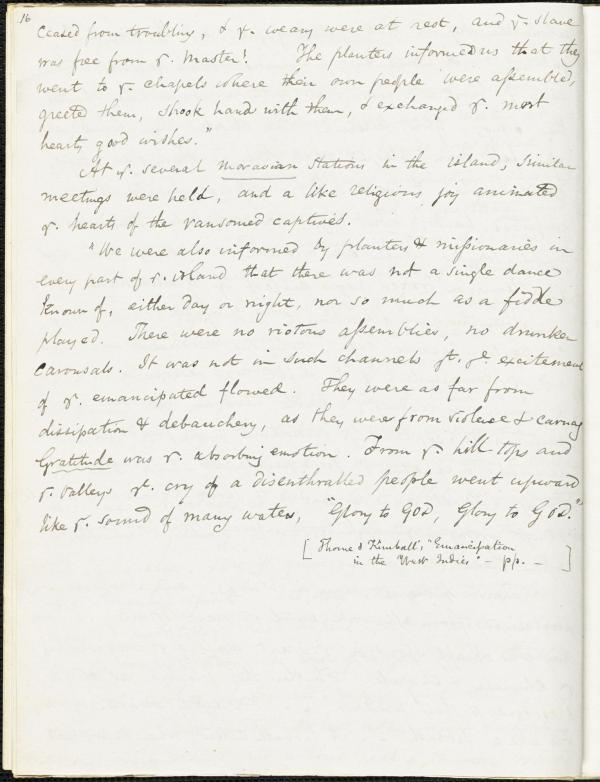 16
ceased from troubling, & yᵉ. weary were at rest, and yᵉ. slave
was free from yᵉ. master! The planters informed us that they
went to yᵉ. chapels where their own people were assembled,
greeted them, shook hands with them, & exchanged yᵉ. most
hearty good wishes."
At yᵉ. several Moravian stations in the island, similar
meetings were held, and a like religious joy animated
yᵉ. hearts of the ransomed captives.
"We were also informed by planters & missionaries in
every part of yᵉ. island that there was not a single dance
known of, either day or night, nor so much as a fiddle
played. There were no riotous assemblies, no drunken
carousals. It was not in such channels yᵗ. yᵉ. excitement
of yᵉ. emancipated flowed. They were as far from
dissipation & debauchery, as they were from violence & carnag
Gratitude was yᵉ. absorbing emotion. From yᵉ. hill tops and
yᵉ. valleys yᵉ. cry of a disenthralled people went upward
like yᵉ. sound of many waters, "Glory to GOD, Glory to GOD."
[Thome & Kimball's, "Emancipation
in the West Indies" - pp. - ]